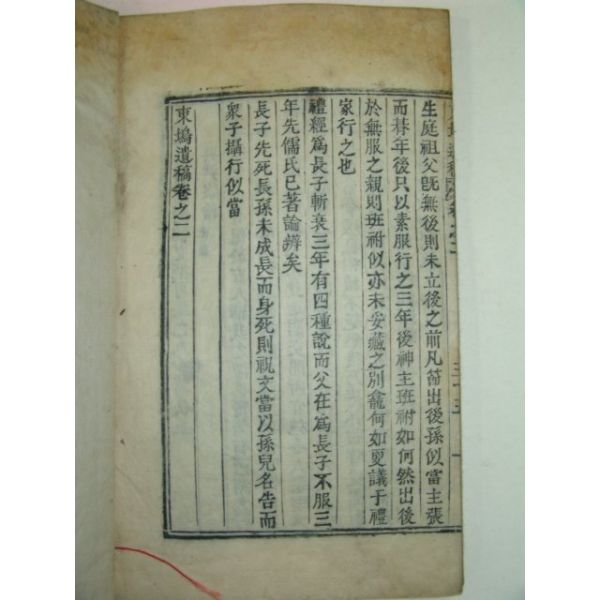 遺稿卷之二
生庭祖父旣無後則未立後之前凡節出後孫似當主張
而朞年後只以素服行之三年後神主班祔如何然出後
於無服之親則班祔似亦未妥藏之別龕何如更議于禮
家行之也
禮經爲長子斬衰三年有四種說而父在爲長子不服三
年先儒氏已著論辨矣
長子先死長孫未成長而身死則祝文當以孫兒名告而
衆子攝行似當
東塢遺稿卷之二